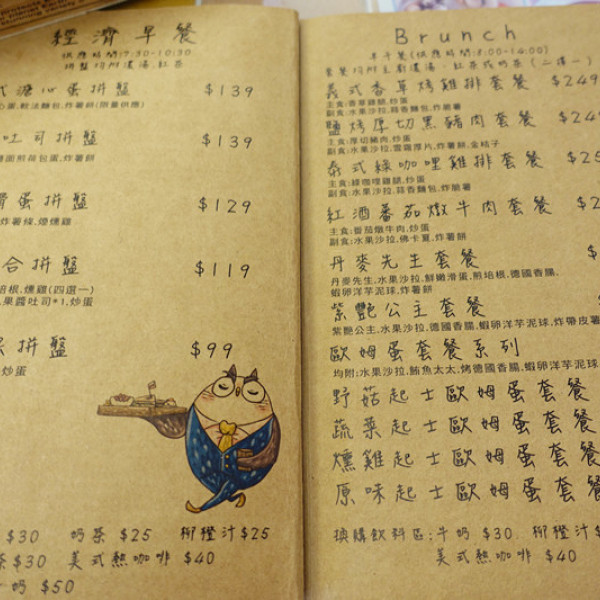 經濟早餐
供應時間:7:30-10:30
拼盤均附濃湯.紅茶
式溏心蛋拼盤 $139
心蛋,軟法麵包,炸薯餅(限量供應)
吐司拼盤 $139
雙面煎荷包蛋,炸薯餅
滑蛋拼盤 $129
炸薯條,煙燻雞
合拼盤 $119
培根,燻雞(四選一)
果醬吐司*1,炒蛋
拼盤 $99
炒蛋
$30 奶茶 $25 柳橙汁$25
茶$30 美式熱咖啡 $40
奶 $50
Brunch
早午餐(供應時間:8:00-14:00)
套餐均附主廚濃湯.紅茶或奶茶(二擇一)
義式香草烤雞排套餐 $249
主食:香草雞腿,炒蛋
副食:水果沙拉,蒜香麵包,炸脆薯
鹽烤厚切黑豬肉套餐 $24
主食:厚切豬肉,炒蛋
副食:水果沙拉,雲霧厚片,炸薯餅,金桔子
泰式綠咖哩雞排套餐 $25
主食:綠咖哩雞腿,炒蛋
副食:水果沙拉,蒜香麵包,炸脆薯
紅酒番茄燉牛肉套餐 $2
主食:番茄燉牛肉,炒蛋
副食:水果沙拉,佛卡夏,炸薯餅
丹麥先生套餐 $
丹麥先生,水果沙拉,鮮嫩滑蛋,煎培根,德國香腸,
蝦卵洋芋泥球,炸薯餅
紫艷公主套餐 $
紫艷公主,水果沙拉,德國香腸,蝦卵洋芋泥球,炸帶皮薯
歐姆蛋套餐系列
均附:水果沙拉,鮪魚太太,烤德國香腸,蝦卵洋芋泥球
野菇起士歐姆蛋套餐
蔬菜起士歐姆蛋套餐
燻雞起士歐姆蛋套餐
原味起士歐姆蛋套餐
換購飲料區:牛奶 $30. 柳橙汁$
美式熱咖啡 $40